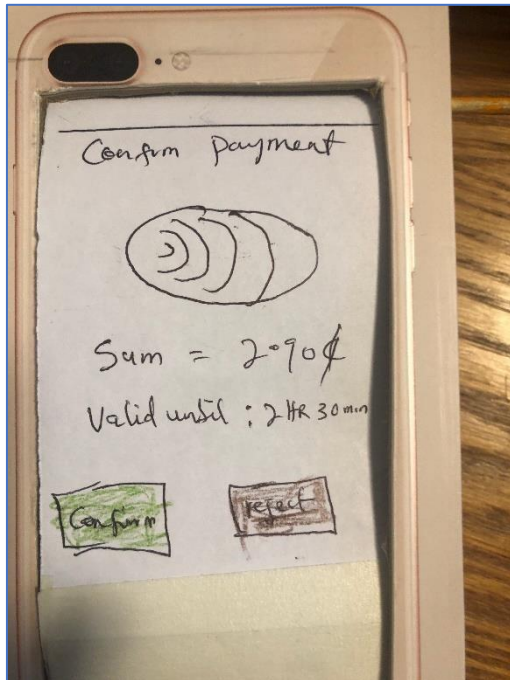 Confirm Payment
Sum = 2.90₵
Valid until : 2 HR 30 min
Confirm
reject